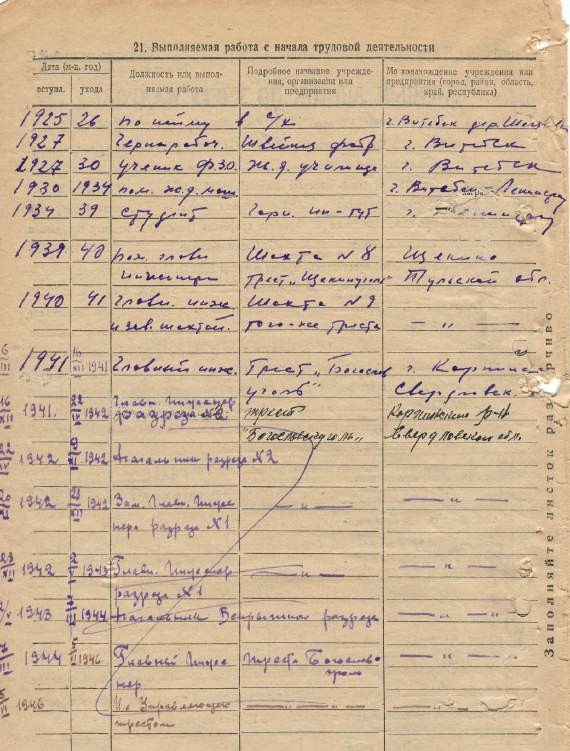 21. Выполняемая работа с начала трудовой деятельности
Дата (м-ц, год)
вступл. ухода
Должность или выполняемая работа
Подробное название учреждения, организации или предприятия
Местонахождение учреждения или предприятия (город, район, область, край, республика)
1925 26 по найму в с/х г. Витебск дер.
1927 Чернорабоч. Швейная фабр г. Витебск
1927 30 ученик ФЗО. ж.д. училище г. Витебск
1930 1934 пом. ж.д. маш. г. Витебск - Ленинград
1934 39 студент Горн. ин-тут г. Ленинград
1939 40 пом. главн Шахта № 8 Щекино
инженера трест „Щекинуголь" Тульской обл.
1940 41 Главн. инж. Шахта № 9
и зав. шахтой. того-же треста — „ —
1941 1941 Главный инж. Трест „Богослов г. Карпинск
уголь" Свердловск.
1941. 1942 Главн. Инженер разреза №2 трест Карпинского р-н
"Богословуголь" Свердловской обл.
1942 1942 Начальник разреза №2
1942 1942 Зам. Главн. Инже — „ — — „ —
нера разреза №1
1942 1943 Главн. Инженер — „ — — „ —
разреза №1
1943 1944 Начальник Вскрышного разреза — „ —
1944 1946 Главный Инже треста Богослов — „ —
нер уголь
1946 И.о Управляющего — „ — — „ —
трестом
Заполняйте листок разборчиво